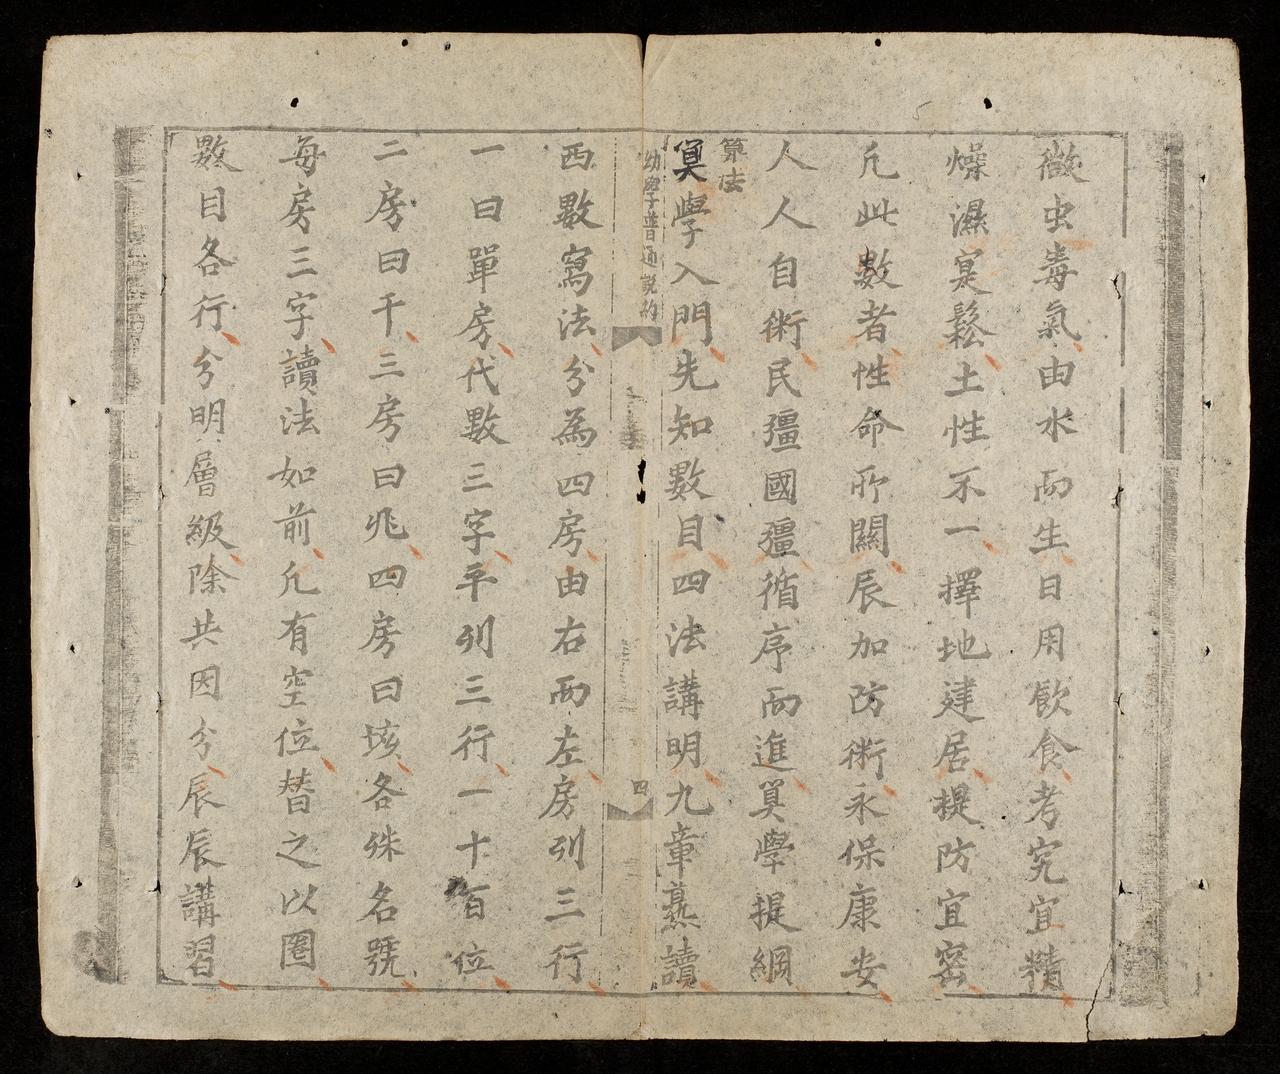 微虫毒氣由水而生日用飲食考究宜精
燥濕寔鬆土性不一擇地建居提防宜密
凢此数者性命所關辰加防術永保康安
人人自術民彊國彊循序而進筭學提綱
筭法
筭學入門先知數目四法講明九章熟讀
幼學普通說約
四
西數寫法分為四房由右而左房列三行
一曰單房代數三字平列三行一十百位
二房曰千三房曰兆四房曰垓各殊名號
每房三字讀法如前凢有空位替之以圈
數目各行分明層級除共因分辰辰講習